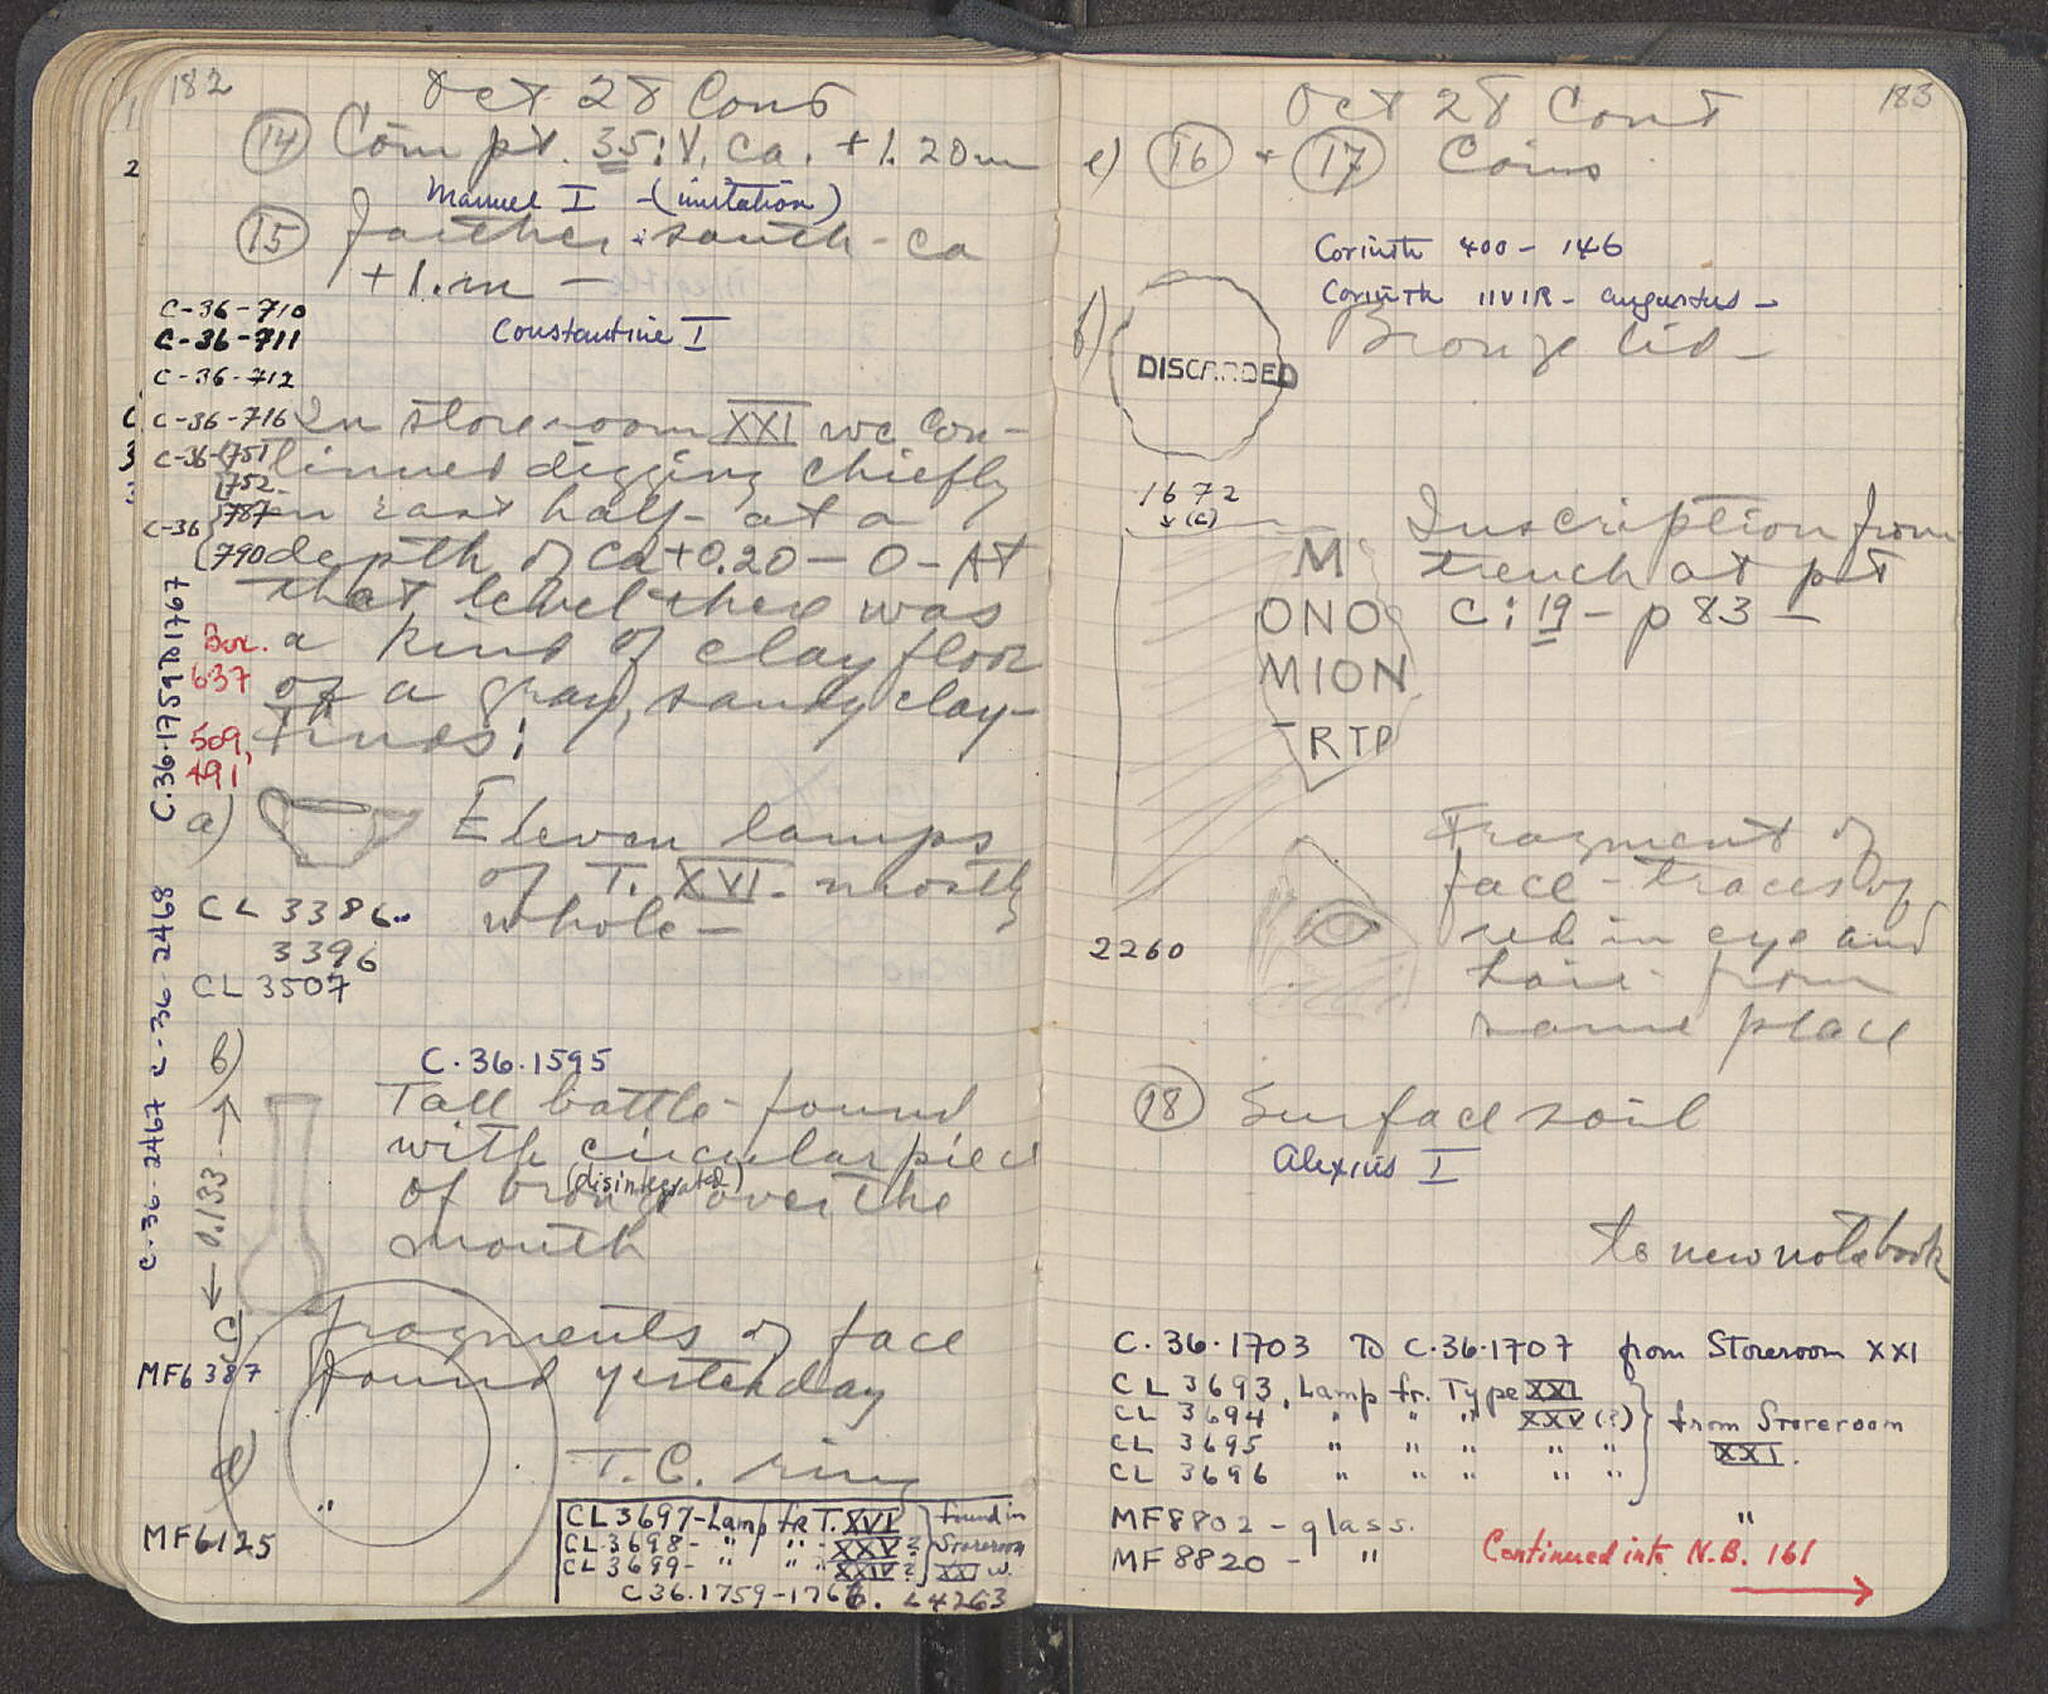 182
Oct 28 Cont
14 Coin pt. 35:V. ca. +1.20m
Manuel I - (imitation)
15 farther south - ca
+1.m -
Constantine I
C-36-710
C-36-711
C-36-712
C-36-716 In storeroom XXI we con-
C-36-(751 tinued digging chiefly
752
in east half - at a
C-36 {787
790 depth of ca +0.20 - 0 - At
that level there was
a kind of clay floor
Box. 637
of a gray, sandy clay-
509, 491
Finds:
C.36.1759 to 1767
a) Eleven lamps
of T. XVI - mostly
whole -
CL 3386..
3396
CL 3507
C-36-2467 C-36-2468
b) C.36.1595
Tall bottle - found
with circular piece
of bronze over the
(disintegrated)
mouth
0.133
c) Fragments of face
MF6387 found yesterday
d) T.C. ring
"
MF6125
CL 3697 - Lamp fr T. XVI } found in
CL 3698 - " " " - XXV ? } Storeroom
CL 3699 - " " " XXIV ? } XXI w.
C36.1759-1766. L4263
183
Oct 28 Cont
e) 16 + 17 Coins
Corinth 400 - 146
Corinth IIVIR - Augustus -
f) Bronze lid -
DISCARDED
1672
(c)
Inscription from
trench at pt
C:19 - p 83 -
M
ONO
MION
RTP
Fragment of
face - traces of
red in eye and
hair from
same place
2260
18 Surface soil
Alexius I
to new notebook
C.36.1703 to C.36.1707 from Storeroom XXI
CL 3693, Lamp fr. Type XXI
CL 3694 " " " XXV (?) } from Storeroom
CL 3695 " " " " " XXI.
CL 3696 " " " " "
MF8802 - glass. "
MF 8820 - "
Continued into N.B. 161